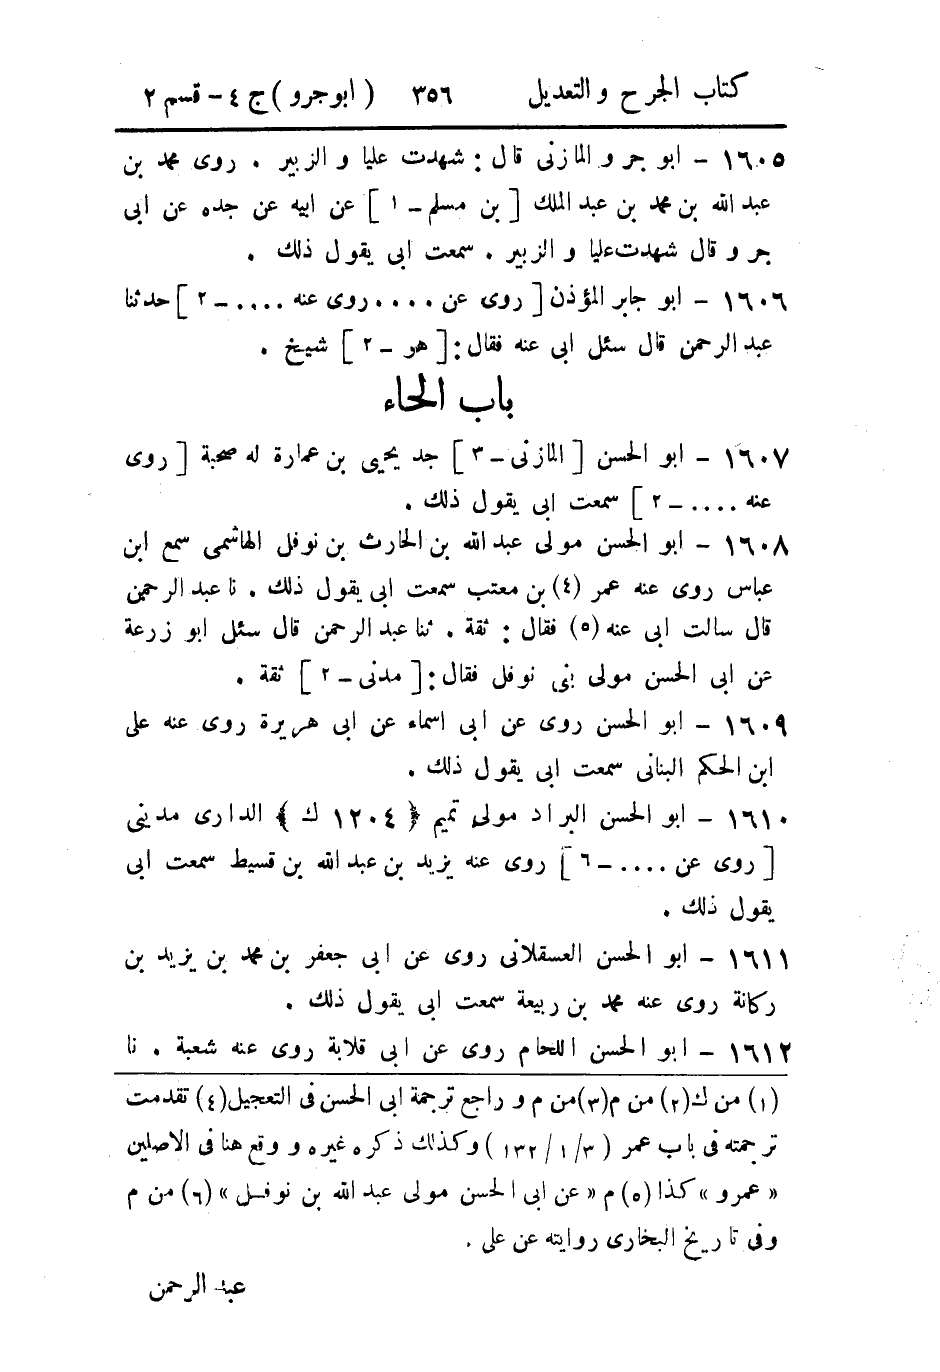 كتاب الجرح والتعديل ٣٥٦ (ابو جرو) ج ٤ - قسم ٢
١٦٠٥ - ابو جرو المازنى قال : شهدت عليا و الزبير . روى محمد بن
عبد الله بن محمد بن عبد الملك [ بن مسلم - ١ ] عن ابيه عن جده عن ابى
جرو قال شهدت عليا و الزبير . سمعت ابى يقول ذلك .
١٦٠٦ - ابو جابر المؤذن [ روى عن .... روى عنه .... - ٢ ] حدثنا
عبد الرحمن قال سئل ابى عنه فقال : [ هو - ٢ ] شيخ .
باب الحاء
١٦٠٧ - ابو الحسن [ المازنى - ٣ ] جد يحيى بن عمارة له صحبة [ روى
عنه .... - ٢ ] سمعت ابى يقول ذلك .
١٦٠٨ - ابو الحسن مولى عبد الله بن الحارث بن نوفل الهاشمى سمع ابن
عباس روى عنه عمر (٤) بن معتب سمعت ابى يقول ذلك . نا عبد الرحمن
قال سالت ابى عنه (٥) فقال : ثقة . ثنا عبد الرحمن قال سئل ابو زرعة
عن ابى الحسن مولى بنى نوفل فقال : [ مدنى - ٢ ] ثقة .
١٦٠٩ - ابو الحسن روى عن ابى اسماء عن ابى هريرة روى عنه على
ابن الحكم البنانى سمعت ابى يقول ذلك .
١٦١٠ - ابو الحسن البراد مولى تميم ﴿ ١٢٠٤ ك ﴾ الدارى مدينى
[ روى عن .... - ٦ ] روى عنه يزيد بن عبد الله بن قسيط سمعت ابى
يقول ذلك .
١٦١١ - ابو الحسن العسقلانى روى عن ابى جعفر بن محمد بن يزيد بن
ركانة روى عنه محمد بن ربيعة سمعت ابى يقول ذلك .
١٦١٢ - ابو الحسن اللحام روى عن ابى قلابة روى عنه شعبة . نا
(١) من ك (٢) من م (٣) من م و راجع ترجمة ابى الحسن فى التعجيل (٤) تقدمت
ترجمته فى باب عمر (٣/١/١٣٢) وكذلك ذكره غيره و وقع هنا فى الاصلين
« عمرو » كذا (٥) م « عن ابى الحسن مولى عبد الله بن نوفل » (٦) من م
وفى تاريخ البخارى روايته عن على .
عبد الرحمن